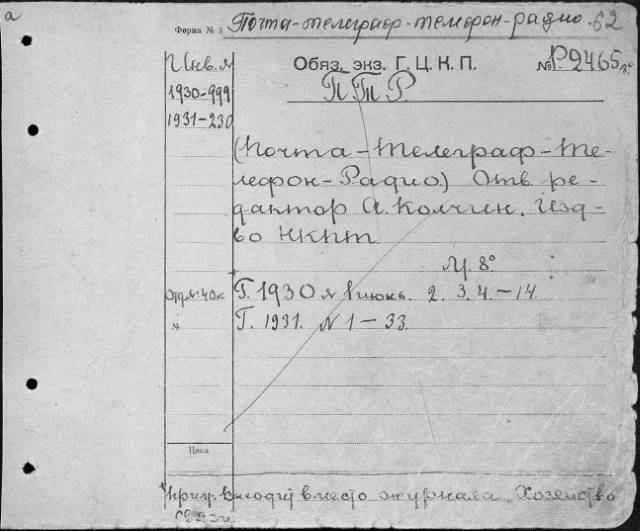 а
Форма № 3 Почта-телеграф-телефон-радио. 62
Инв. №
Обяз. экз. Г. Ц. К. П. № Р.2465 8°
П Т Р.
1930-999
1931-230
(Почта-Телеграф-Те-
лефон-Радио) Отв. ре-
дактор А. Колчин. Изд-
во НКПТ
М. 8°
Г. 1930 № 1 июнь. 2. 3. 4.-14.
№ Г. 1931. № 1-33.
Цена
Прим. Выходит вместо журнала „Хозяйство
связи